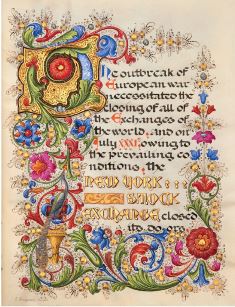 The outbreak of
European war
necessitated the
closing of all of
the Exchanges of
the world; and on
July XXXI, owing to
the prevailing co
nditions, the
NEW YORK
STOCK
EXCHANGE closed
its doors